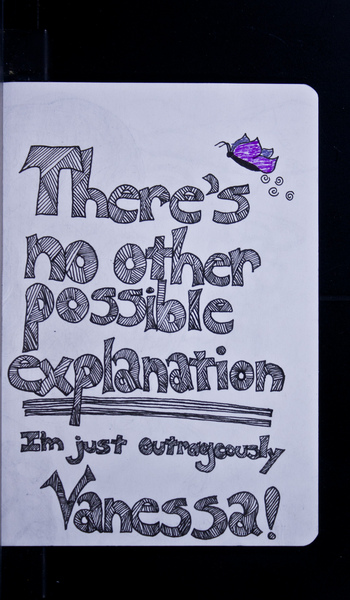 There's
no other
possible
explanation
I'm just outrageously
Vanessa!